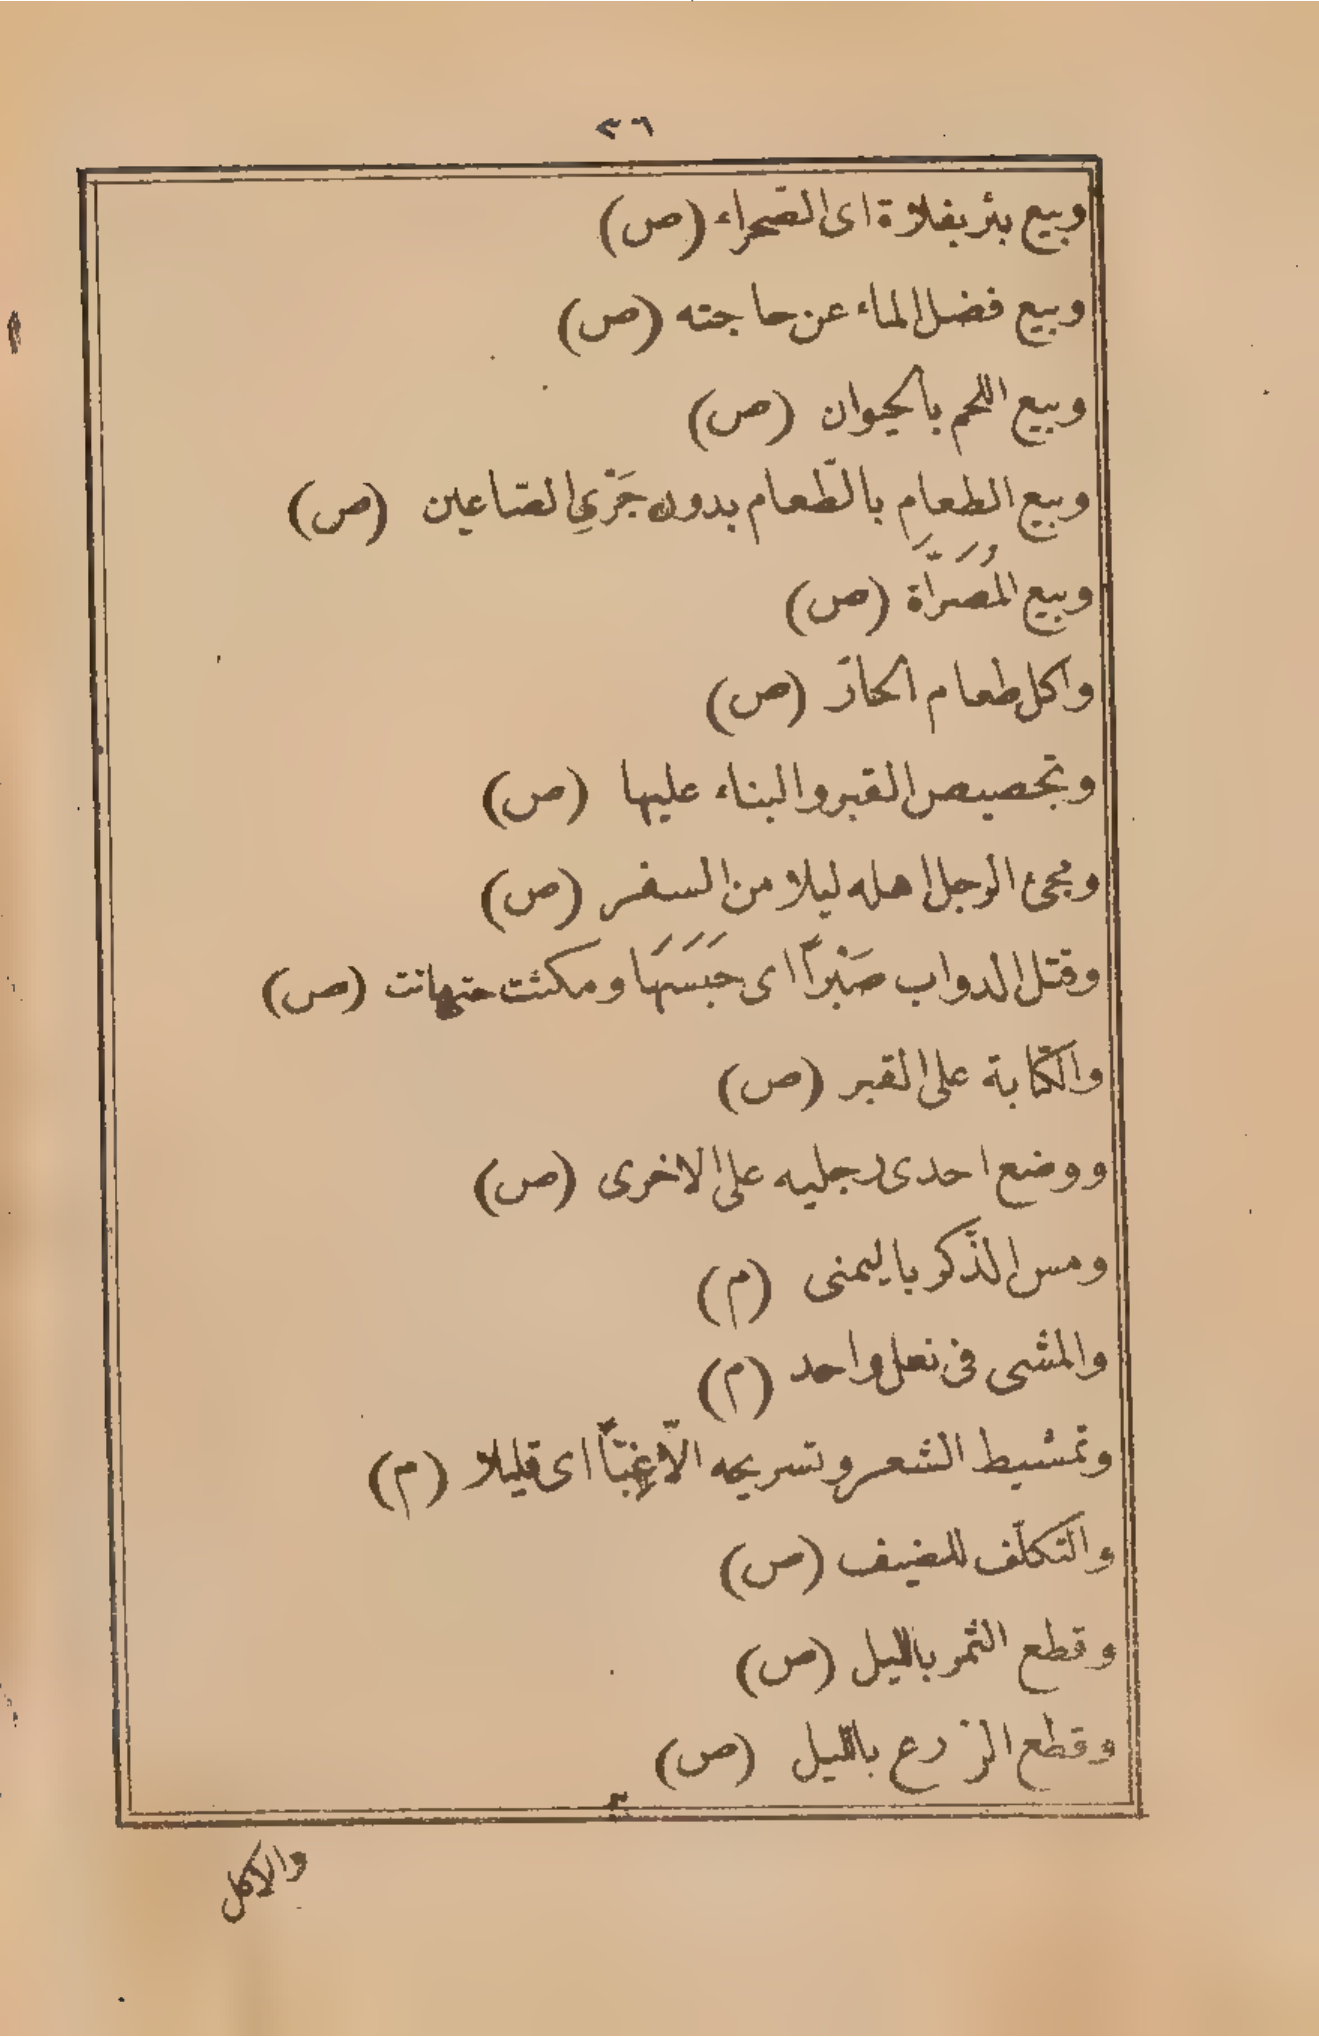 ٢٦
وبيع بئر بفلاة اى الصّحراء (ص)
وبيع فضل الماء عن حاجته (ص)
وبيع اللحم بالحيوان (ص)
وبيع الطعام بالطّعام بدون جَرْىِ الصّاعين (ص)
وبيع المُصَرَّاة (ص)
واكل طعام الحارّ (ص)
وتجصيص القبر والبناء عليها (ص)
ومجئ الرجل اهله ليلا من السفر (ص)
وقتل الدواب صَبْراً اى حَبَسَهَا ومكثت حتى ماتت (ص)
والكتابة على القبر (ص)
ووضع احدى رجليه على الاخرى (ص)
ومس الذّكر باليمنى (م)
والمشى فى نعل واحد (م)
وتمشيط الشعر وتسريحه الّا غِبّاً اى قليلا (م)
والتكلّف للضيف (ص)
وقطع الثمر بالليل (ص)
وقطع الزرع بالليل (ص)
والاكل